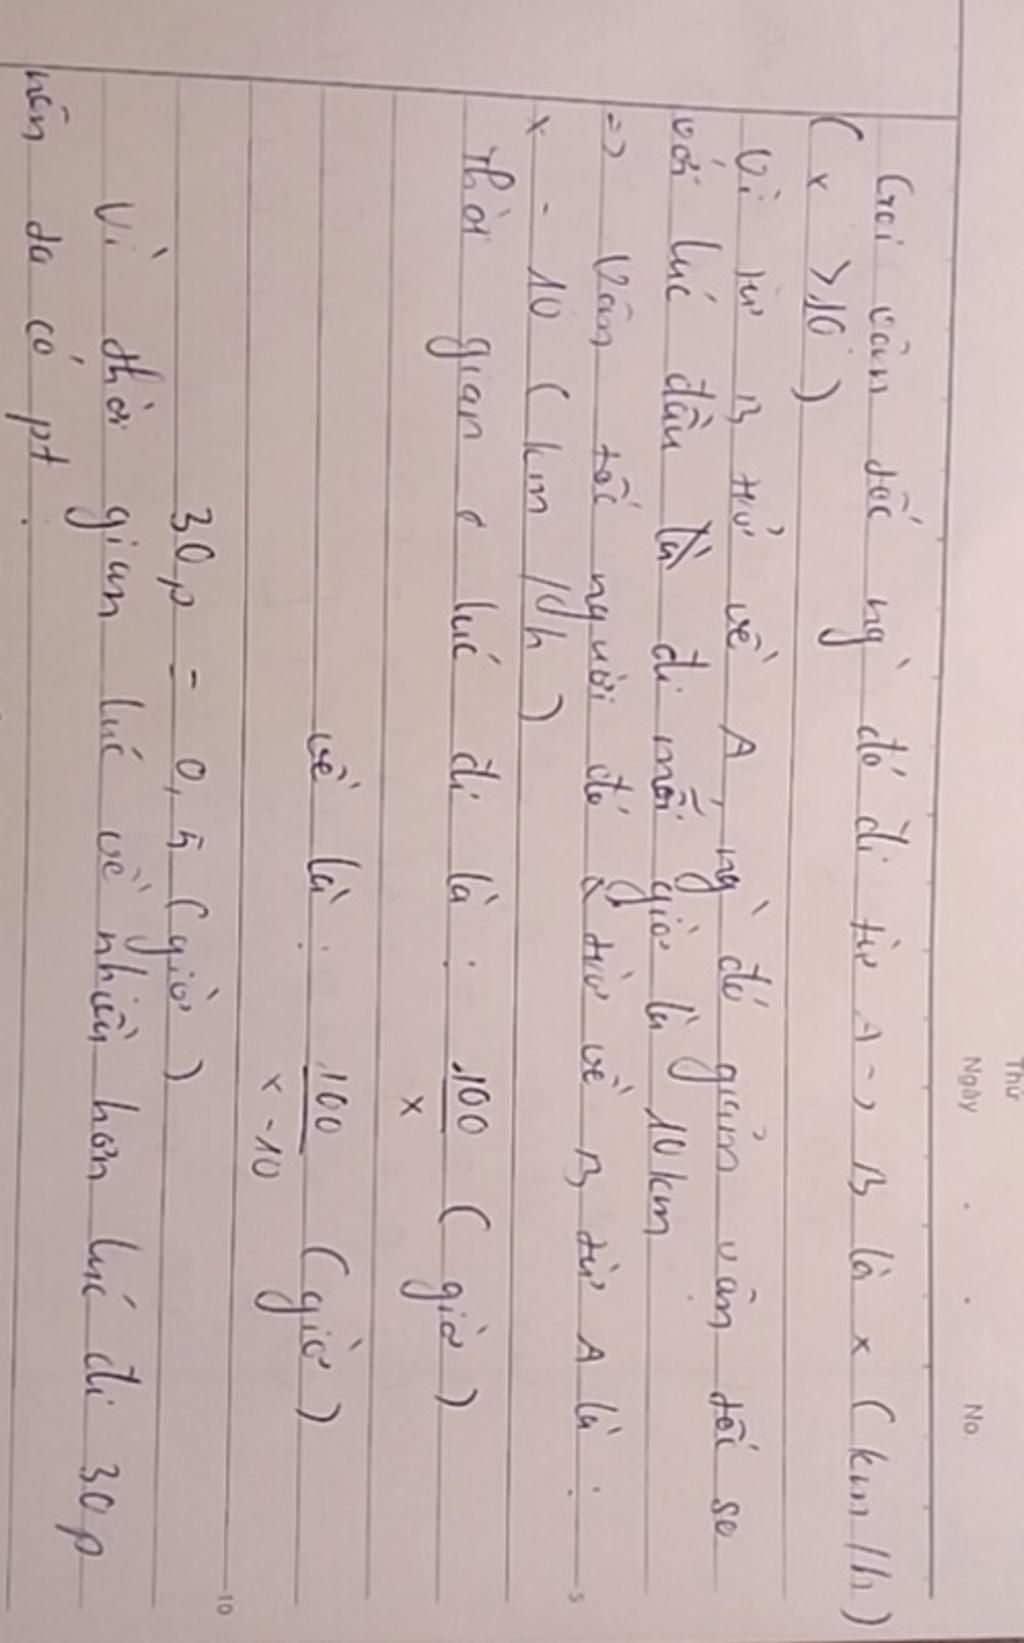 Thứ
Ngày . . No.
Gọi vân tốc ng` đó đi từ A -> B là x (km/h)
(x > 10)
Vì từ B trở về A, ng` đó giảm vân tốc so
với lúc đầu là đi mỗi giờ là 10km
=> Vân tốc người đó từ về B từ A là :
x - 10 (km/h)
Thời gian lúc đi là : 100/x (giờ)
về là : 100/x-10 (giờ)
30p = 0,5 (giờ)
Vì thời gian lúc về nhiều hơn lúc đi 30p
nên ta có pt :
5
10